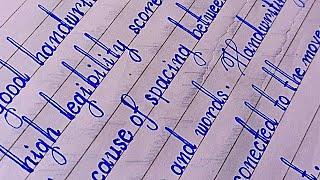 Good handwri
high legibility score
cause of spacing between
and words. Handwriti
conected to the move